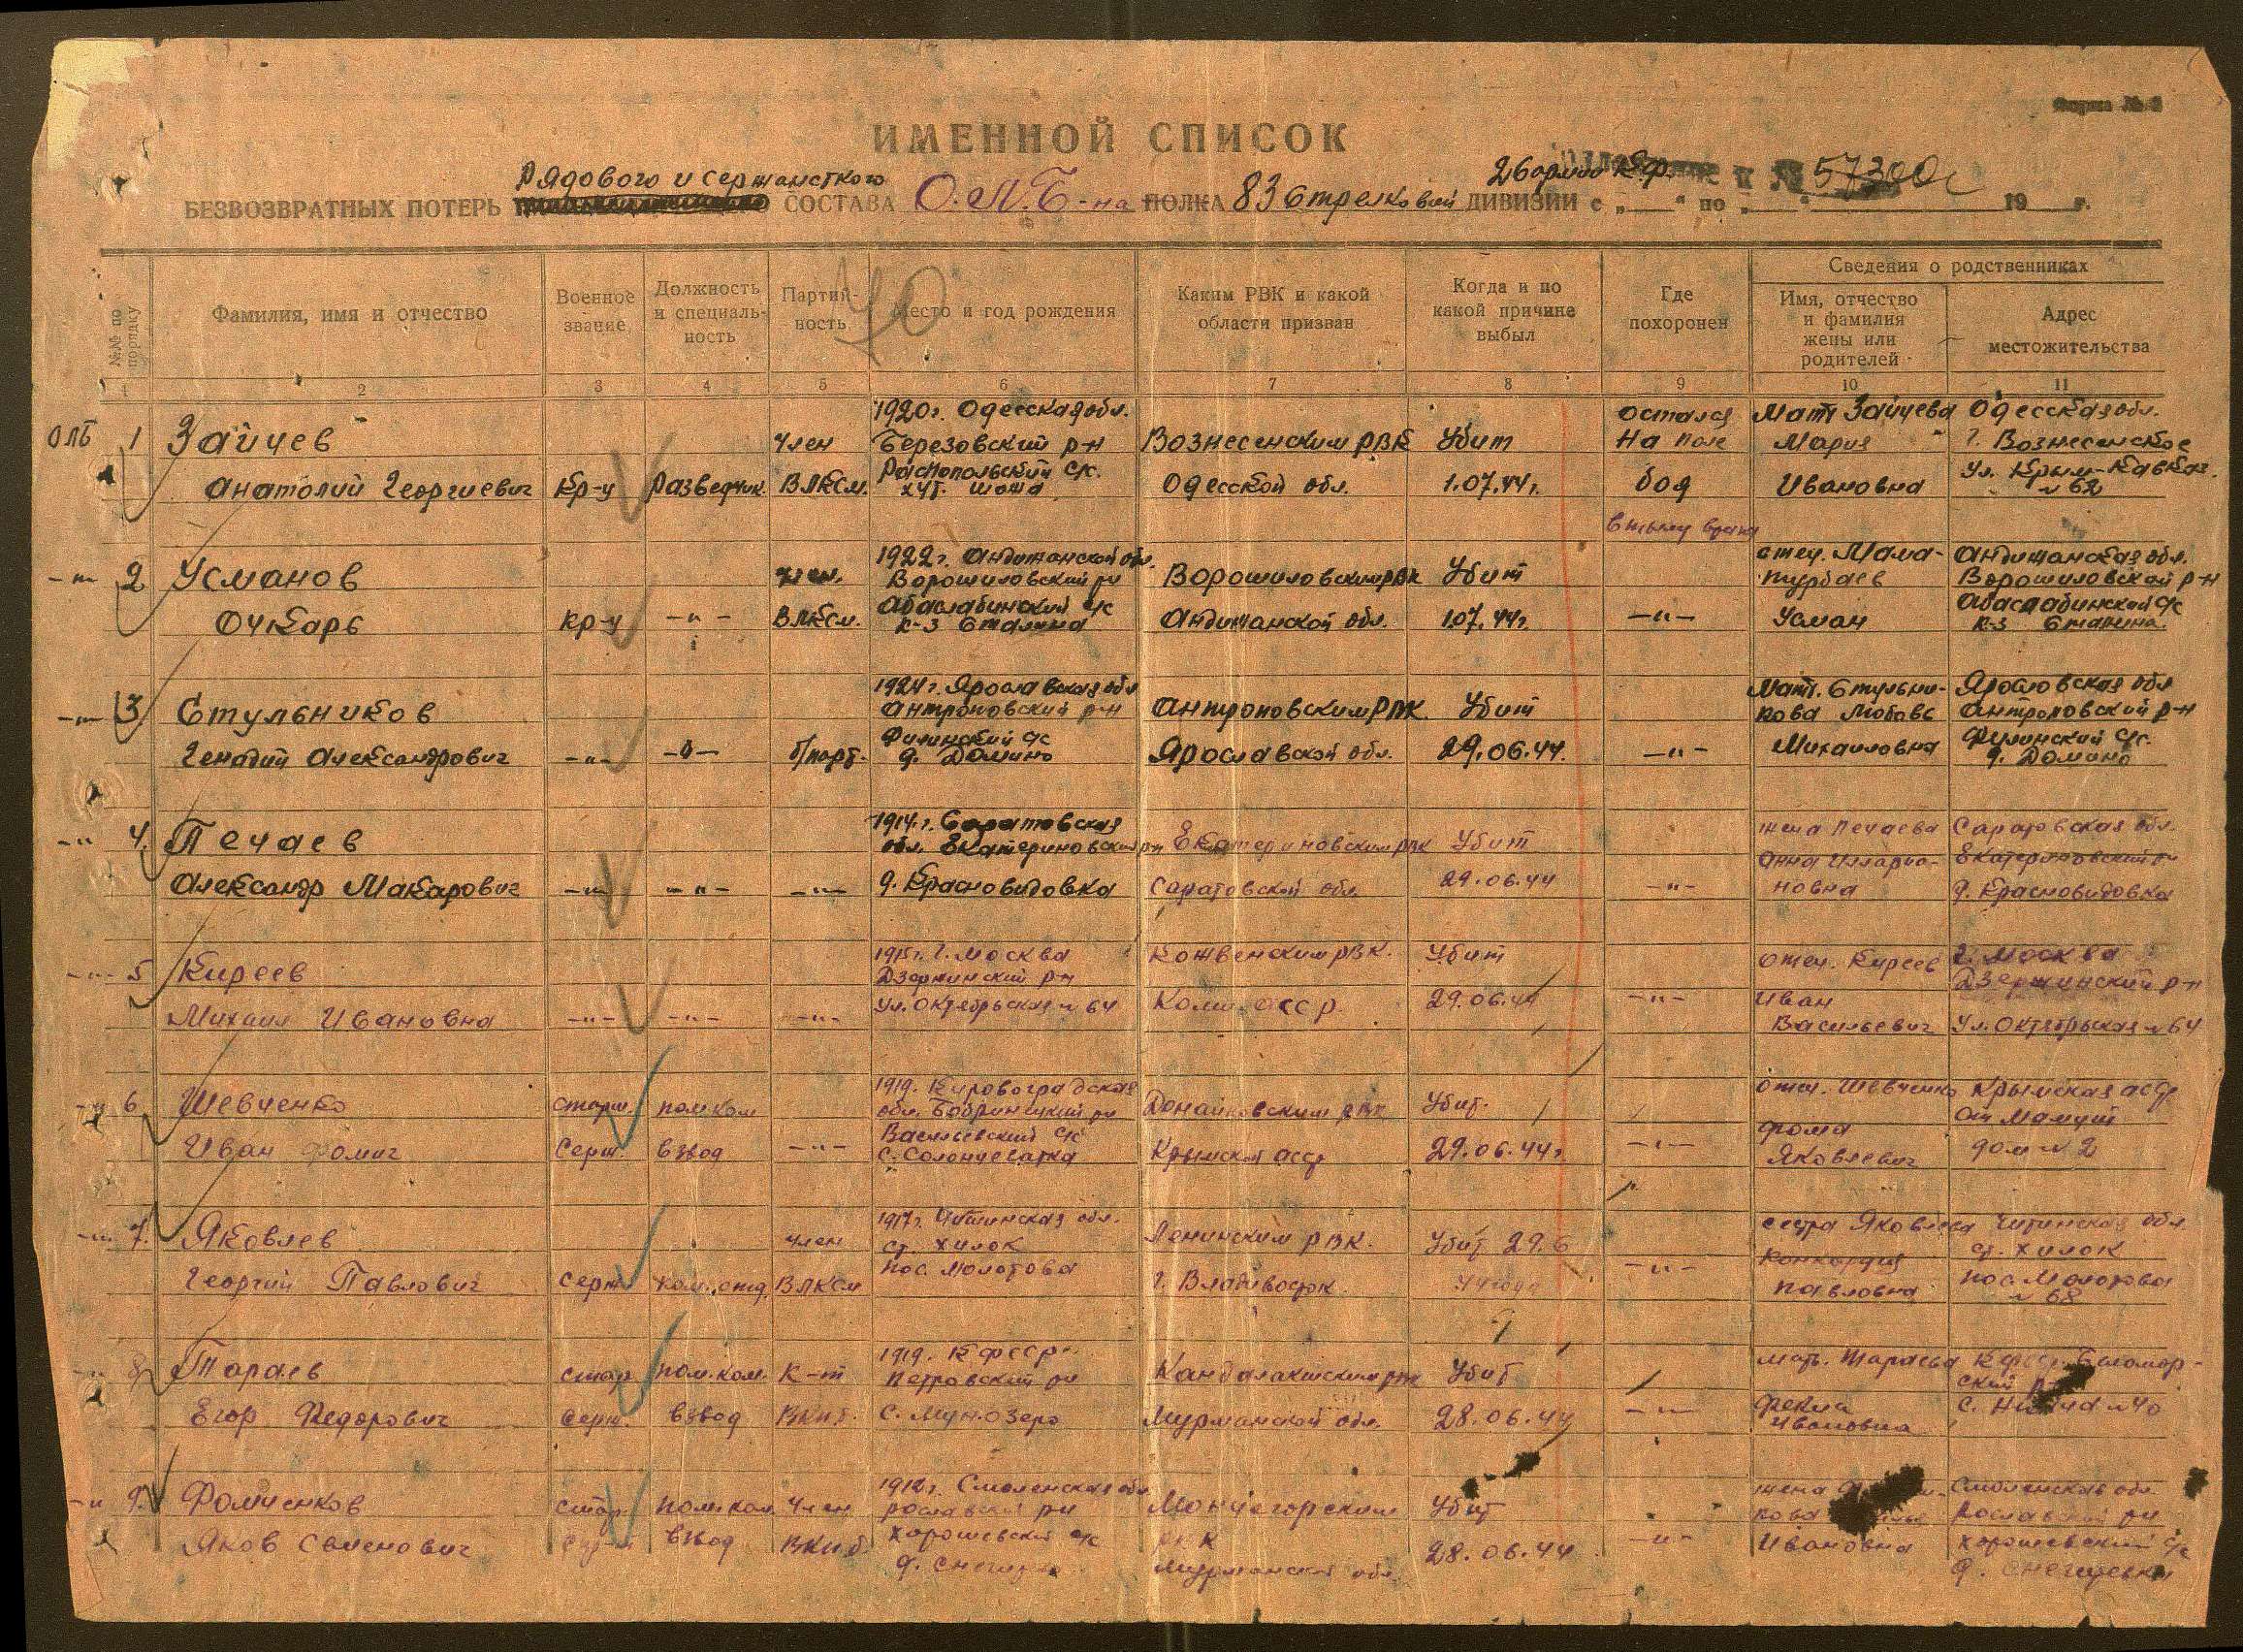 ИМЕННОЙ СПИСОК
Рядового и сержантского
26 армии К.Ф.
№ 57300с
БЕЗВОЗВРАТНЫХ ПОТЕРЬ СОСТАВА О.Л.Б-на ПОЛКА 83 Стрелковой ДИВИЗИИ с „ “ по „ “ 19 г.
40
№№ по порядку
Фамилия, имя и отчество
Военное звание
Должность и специаль-ность
Партий-ность
Место и год рождения
Каким РВК и какой области призван
Когда и по какой причине выбыл
Где похоронен
Сведения о родственниках
Имя, отчество и фамилия жены или родителей
Адрес местожительства
1 2 3 4 5 6 7 8 9 10 11
1920г. Одесская обл. остался Мать Зайцева Одесская обл.
ОЛБ 1 Зайцев член Березовский р-н Вознесенским РВК Убит на поле Мария г. Вознесенское
Распопольский с/с. ул. Крым-Кавказ.
Анатолий Георгиевич кр-ц Разведчик. ВЛКСМ. хут. Одесской обл. 1.07.44г. боя Ивановна № 62
в тылу врага
1922г. Андижанской обл. отец. Мама- Андижанская обл.
-"- 2 Усманов член. Ворошиловский рн Ворошиловским РВК Убит турбаев Ворошиловской р-н
Абаслабинский с/с Абаслабинской с/с
Очкарь кр-ц -"- ВЛКСМ. к-з Сталина Андижанской обл. 1.07.44г. -"- Усман к-з Сталина
1924г. Ярославская обл Мать. Стульни- Ярословская обл
-"- 3 Стульников Антроповский р-н Антроповским РВК. Убит кова Любовь Антроповский р-н
с/с с/с.
Генадий Александрович -"- -"- б/парт. д. Домино Ярославской обл. 29.06.44. -"- Михаиловна д. Домино
1914.г. Саратовская жена Печаева Саратовская обл.
-"- 4. Печаев обл. Екатериновский рн Екатериновским РВК Убит Анна Иллари- Екатериновский рн
Александр Макарович -"- -"- -"- д. Красновидовка Саратовской обл. 29.06.44 -"- новна д. Красновидовка
1915г. г. Москва
-"- 5 Киреев Дзержинский р-н РВК. Убит отец. Киреев г. Москва
Дзержинский р-н
Михаил Ивановна -"- -"- -"- ул. Октябрьская № 64 Коми АССР. 29.06.44 -"- Иван
Васильевич ул. Октябрьская № 64
1919. Кировоградская отец. Шевченко Крымская АССР
-"- 6 Шевченко старш. пом.ком обл. Бобринецкий рн РВК Убит. ст. Мамут
Васильевский с/с Фома
Иван Фомич Серж. взвод -"- с. Крымской АССР 29.06.44г. -"- Яковлевич дом № 2
1917г. Читинская обл. сестра Яковлева Читинская обл
-"- 7. Яковлев член ст. Хилок Ленинским РВК. Убит 29.6 ст. Хилок
пос. Молотова Конкордия
Георгий Павлович серж ком. отд. ВЛКСМ г. Владивосток 44 года -"- Павловна пос. Молотова
№ 68
1919. КФССР мать. Тараева КФССР. Беломор-
-"- 8 Тараев стар пом.ком. к-т Петровский рн Кандалакшским РВК Убит ский р-н
Егор Федорович серж. взвод ВКПб. с. Мунозеро Мурманской обл. 28.06.44 -"- Фекла с.
Ивановна
1912г. Смоленская обл жена Смоленская обл.
-"- 9. Фомченков стар. пом.ком член рн Мончегорским Убит кова рн
Хорошевский с/с РВК
Яков Семенович взвод ВКПб. 28.06.44 -"- Ивановна Хорошевский с/с
д. Мурманской обл. д.